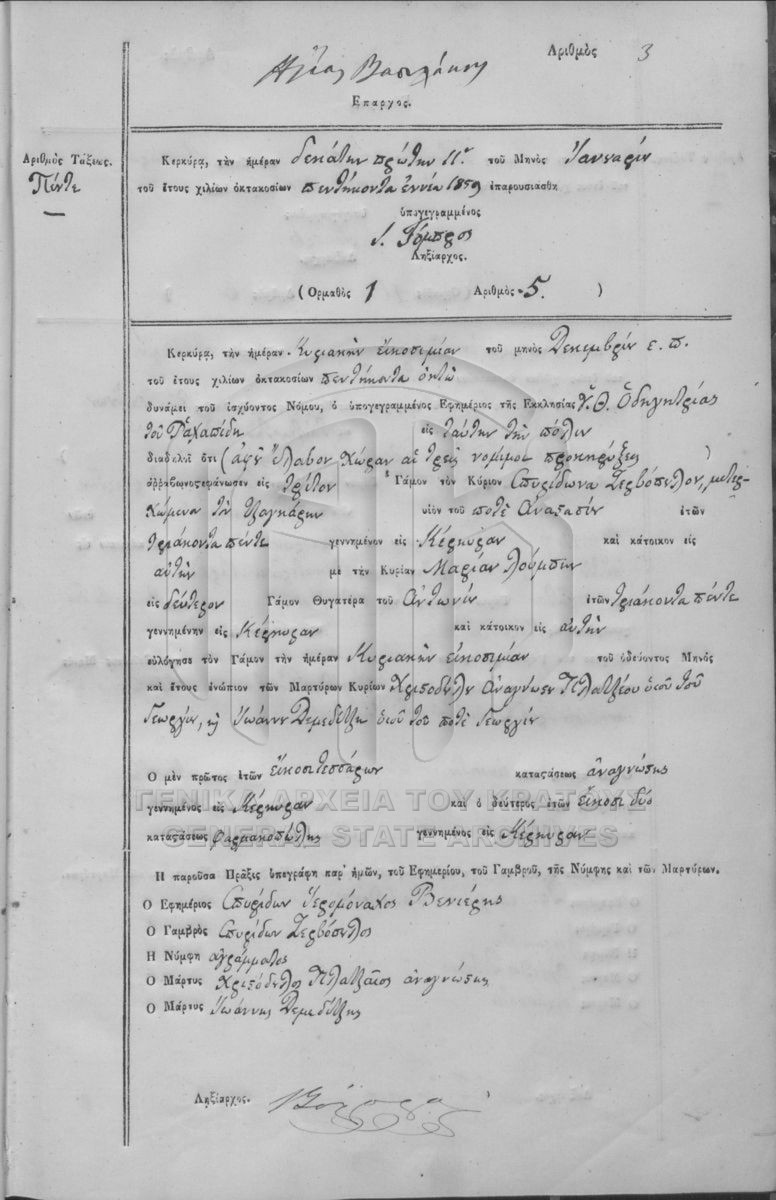 Αριθμὸς 3
Ηλίας Βασιλάκης
Επαρχος.
Αριθμὸς Τάξεως.
Πέντε
Κερκύρα, τὴν ἡμέραν δεκάτην πρώτην 11ην τοῦ Μηνὸς Ἰανουαρίου
τοῦ ἔτους χιλίων ὀκτακοσίων πεντήκοντα ἐννέα 1859 ἐπαρουσιάσθη
ὑπογεγραμμένος
Ληξίαρχος.
(Ορμαθὸς 1 Αριθμὸς 5. )
Κερκύρα, τὴν ἡμέραν Κυριακὴν εἰκοσιμίαν τοῦ μηνὸς Δεκεμβρίου ε. π.
τοῦ ἔτους χιλίων ὀκτακοσίων πεντήκοντα ὀκτὼ
δυνάμει τοῦ ἰσχύοντος Νόμου, ὁ ὑπογεγραμμένος Εφημέριος τῆς Εκκλησίας Ὑ. Θ. Ὁδηγητρίας
τοῦ εἰς ταύτην τὴν πόλιν
διαδηλοῖ ὅτι (ἀφ' οὗ ἔλαβον χώραν αἱ τρεῖς νόμιμοι προκηρύξεις )
ἀῤῥαβωνοςεφάνωσεν εἰς τρίτον Γάμον τὸν Κύριον Σπυρίδωνα Ζερβόπουλον, μετερ-
χόμενον τὸν υἱὸν τοῦ ποτὲ Αναστασίου ἐτῶν
τριάκοντα πέντε γεννημένον εἰς Κέρκυραν καὶ κάτοικον εἰς
αὐτὴν μὲ τὴν Κυρίαν Μαρίαν
εἰς δεύτερον Γάμον Θυγατέρα τοῦ Ἀντωνίου ἐτῶν τριάκοντα πέντε
γεννημένην εἰς Κέρκυραν καὶ κάτοικον εἰς αὐτὴν
εὐλόγησε τὸν Γάμον τὴν ἡμέραν Κυριακὴν εἰκοσιμίαν τοῦ ὁδεύοντος Μηνὸς
καὶ ἔτους ἐνώπιον τῶν Μαρτύρων Κυρίων Χριστοδούλου ἀναγνώστου υἱοῦ τοῦ
Γεωργίου, καὶ Ἰωάννου υἱοῦ τοῦ ποτὲ Γεωργίου
Ο μὲν πρῶτος ἐτῶν εἰκοσιτεσσάρων καταςάσεως ἀναγνώστης
γεννημένος εἰς Κέρκυραν καὶ ὁ δεύτερος ἐτῶν εἴκοσι δύο
καταςάσεως φαρμακοπώλης γεννημένος εἰς Κέρκυραν
ΓΕΝΙΚΑ ΑΡΧΕΙΑ ΤΟΥ ΚΡΑΤΟΥΣ
GENERAL STATE ARCHIVES
Η παροῦσα Πρᾶξις ὑπεγράφη παρ' ἡμῶν, τοῦ Εφημερίου, τοῦ Γαμβροῦ, τῆς Νύμφης καὶ τῶν Μαρτύρων.
Ο Εφημέριος Σπυρίδων Ἱερομόναχος Βενιέρης
Ο Γαμβρὸς Σπυρίδων Ζερβόπουλος
Η Νύμφη ἀγράμματος
Ο Μάρτυς Χριστόδουλος ἀναγνώστης
Ο Μάρτυς Ἰωάννης
Ληξίαρχος.